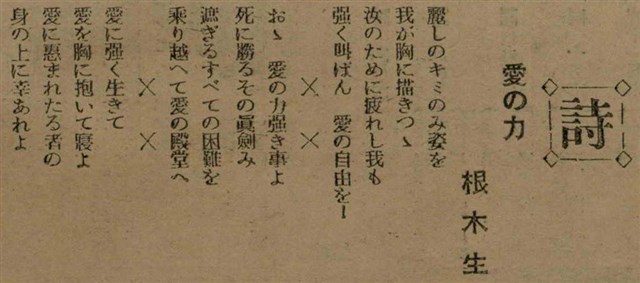 詩
愛の力
根木生
麗しのキミのみ姿を
我が胸に描きつゝ
汝のために疲れし我も
强く叫ばん　愛の自由をー
××
おゝ　愛の力强き事よ
死に勝るその眞劍み
遮ぎるすべての困難を
乘り越へて愛の殿堂へ
××
愛に强く生きて
愛を胸に抱いて寢よ
愛に惠まれたる者の
身の上に幸あれよ